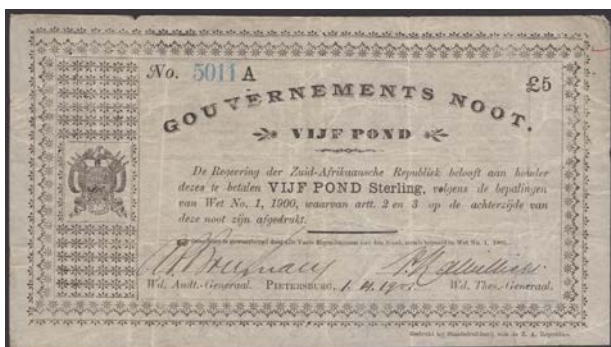 No. 5011 A
£5
GOUVERNEMENTS NOOT.
VIJF POND
De Regeering der Zuid-Afrikaansche Republiek belooft aan houder
dezes te betalen VIJF POND Sterling, volgens de bepalingen
van Wet No. 1, 1900, waarvan artt. 2 en 3 op de achterzijde van
deze noot zijn afgedrukt.
Wd. Audt.-Generaal. PIETERSBURG, Wd. Thes.-Generaal.
Gedrukt ter Staatsdrukkerij van de Z. A. Republiek.